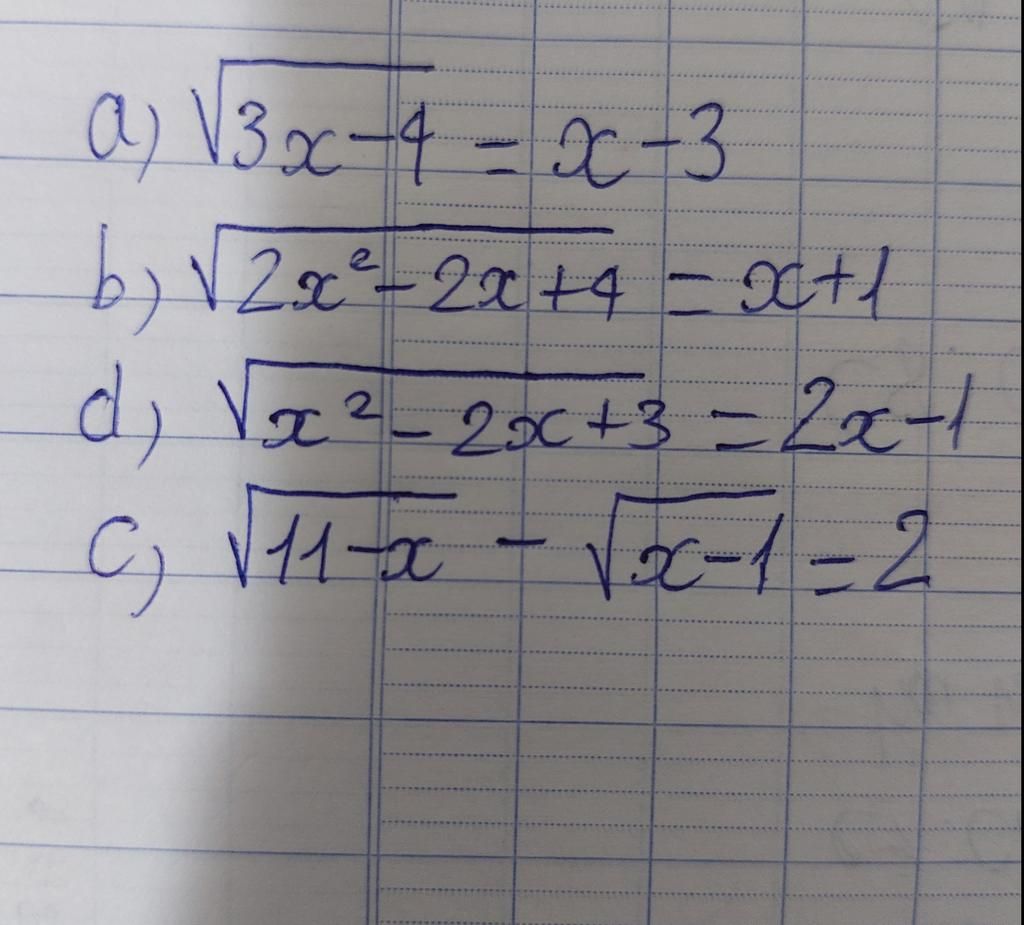 a) √3x-4 = x-3
b) √2x²-2x+4 = x+1
d) √x²-2x+3 = 2x-1
c) √11-x - √x-1 = 2